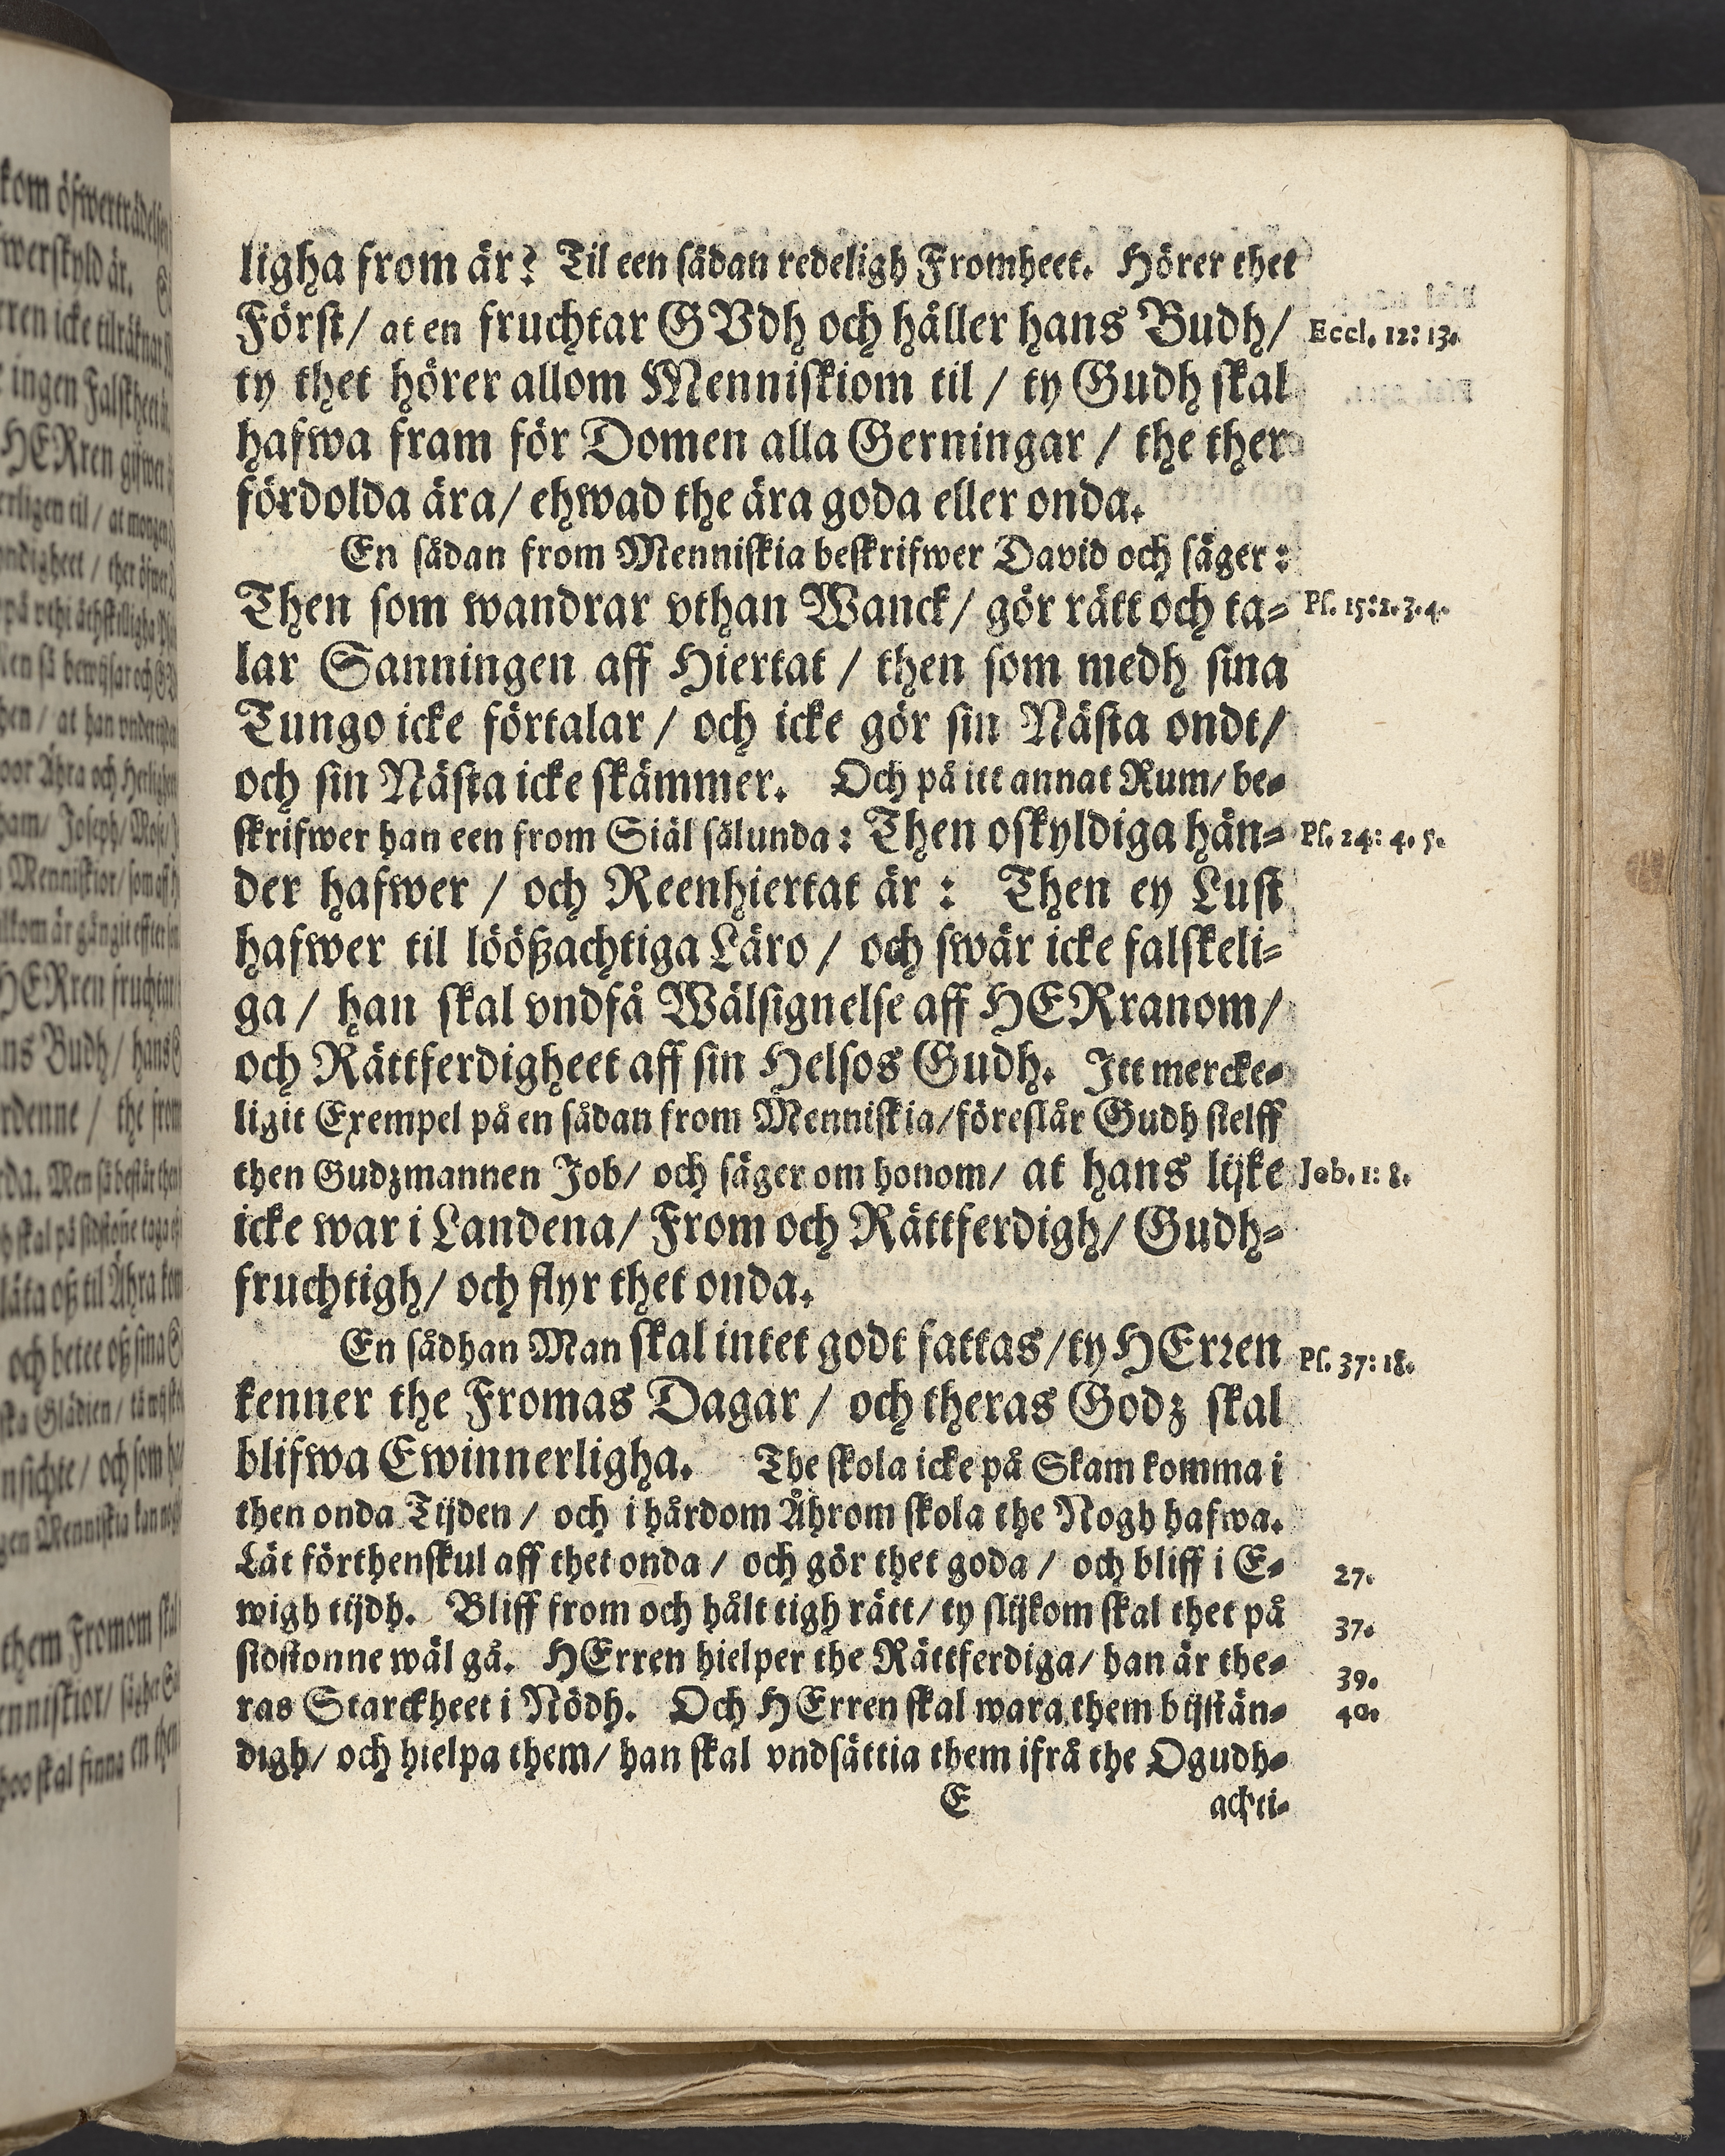 ligha from är? Til een sådan redeligh Fromheet. Hörer thet
Först/ at en fruchtar GVdh och håller hans Budh/ Eccl. 12: 13.
ty thet hörer allom Menniskiom til / ty Gudh skal
hafwa fram för Domen alla Gerningar / the ther
fördolda ära/ ehwad the ära goda eller onda.
En sådan from Menniskia beskrifwer David och säger:
Then som wandrar vthan Wanck/ gör rätt och ta- Ps. 15:2.3.4.
lar Sanningen aff Hiertat / then som medh sina
Tungo icke förtalar / och icke gör sin Nästa ondt/
och sin Nästa icke skämmer. Och på itt annat Rum/ be-
skrifwer han een from Siäl sålunda: Then oskyldiga hän- Ps. 24: 4. 5.
der hafwer / och Reenhiertat är : Then ey Lust
hafwer til löößachtiga Läro / och swär icke falskeli-
ga / han skal vndfå Wälsignelse aff HERranom/
och Rättferdigheet aff sin Helsos Gudh. Itt mercke-
ligit Exempel på en sådan from Menniskia/ föreslår Gudh sielff
then Gudzmannen Job/ och säger om honom/ at hans lijke Job. 1: 8.
icke war i Landena/ From och Rättferdigh/ Gudh-
fruchtigh/ och flyr thet onda.
En sådhan Man skal intet godt fattas/ ty HErren Ps. 37: 18.
kenner the Fromas Dagar / och theras Godz skal
blifwa Ewinnerligha. The skola icke på Skam komma i
then onda Tijden / och i hårdom Åhrom skola the Nogh hafwa.
Låt förthenskul aff thet onda / och gör thet goda / och bliff i E- 27.
wigh tijdh. Bliff from och hålt tigh rätt/ ty slijkom skal thet på 37.
sidstonne wäl gå. HErren hielper the Rättferdiga/ han är the- 39.
ras Starckheet i Nödh. Och HErren skal wara them bijstän- 40.
digh/ och hielpa them/ han skal vndsättia them ifrå the Ogudh-
E achti-